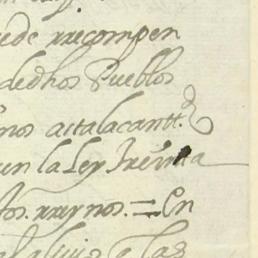 ede rrecompen
dedhos Pueblos
nos astalacantt.
un la Ley Treinta
tos. rreynos. = En